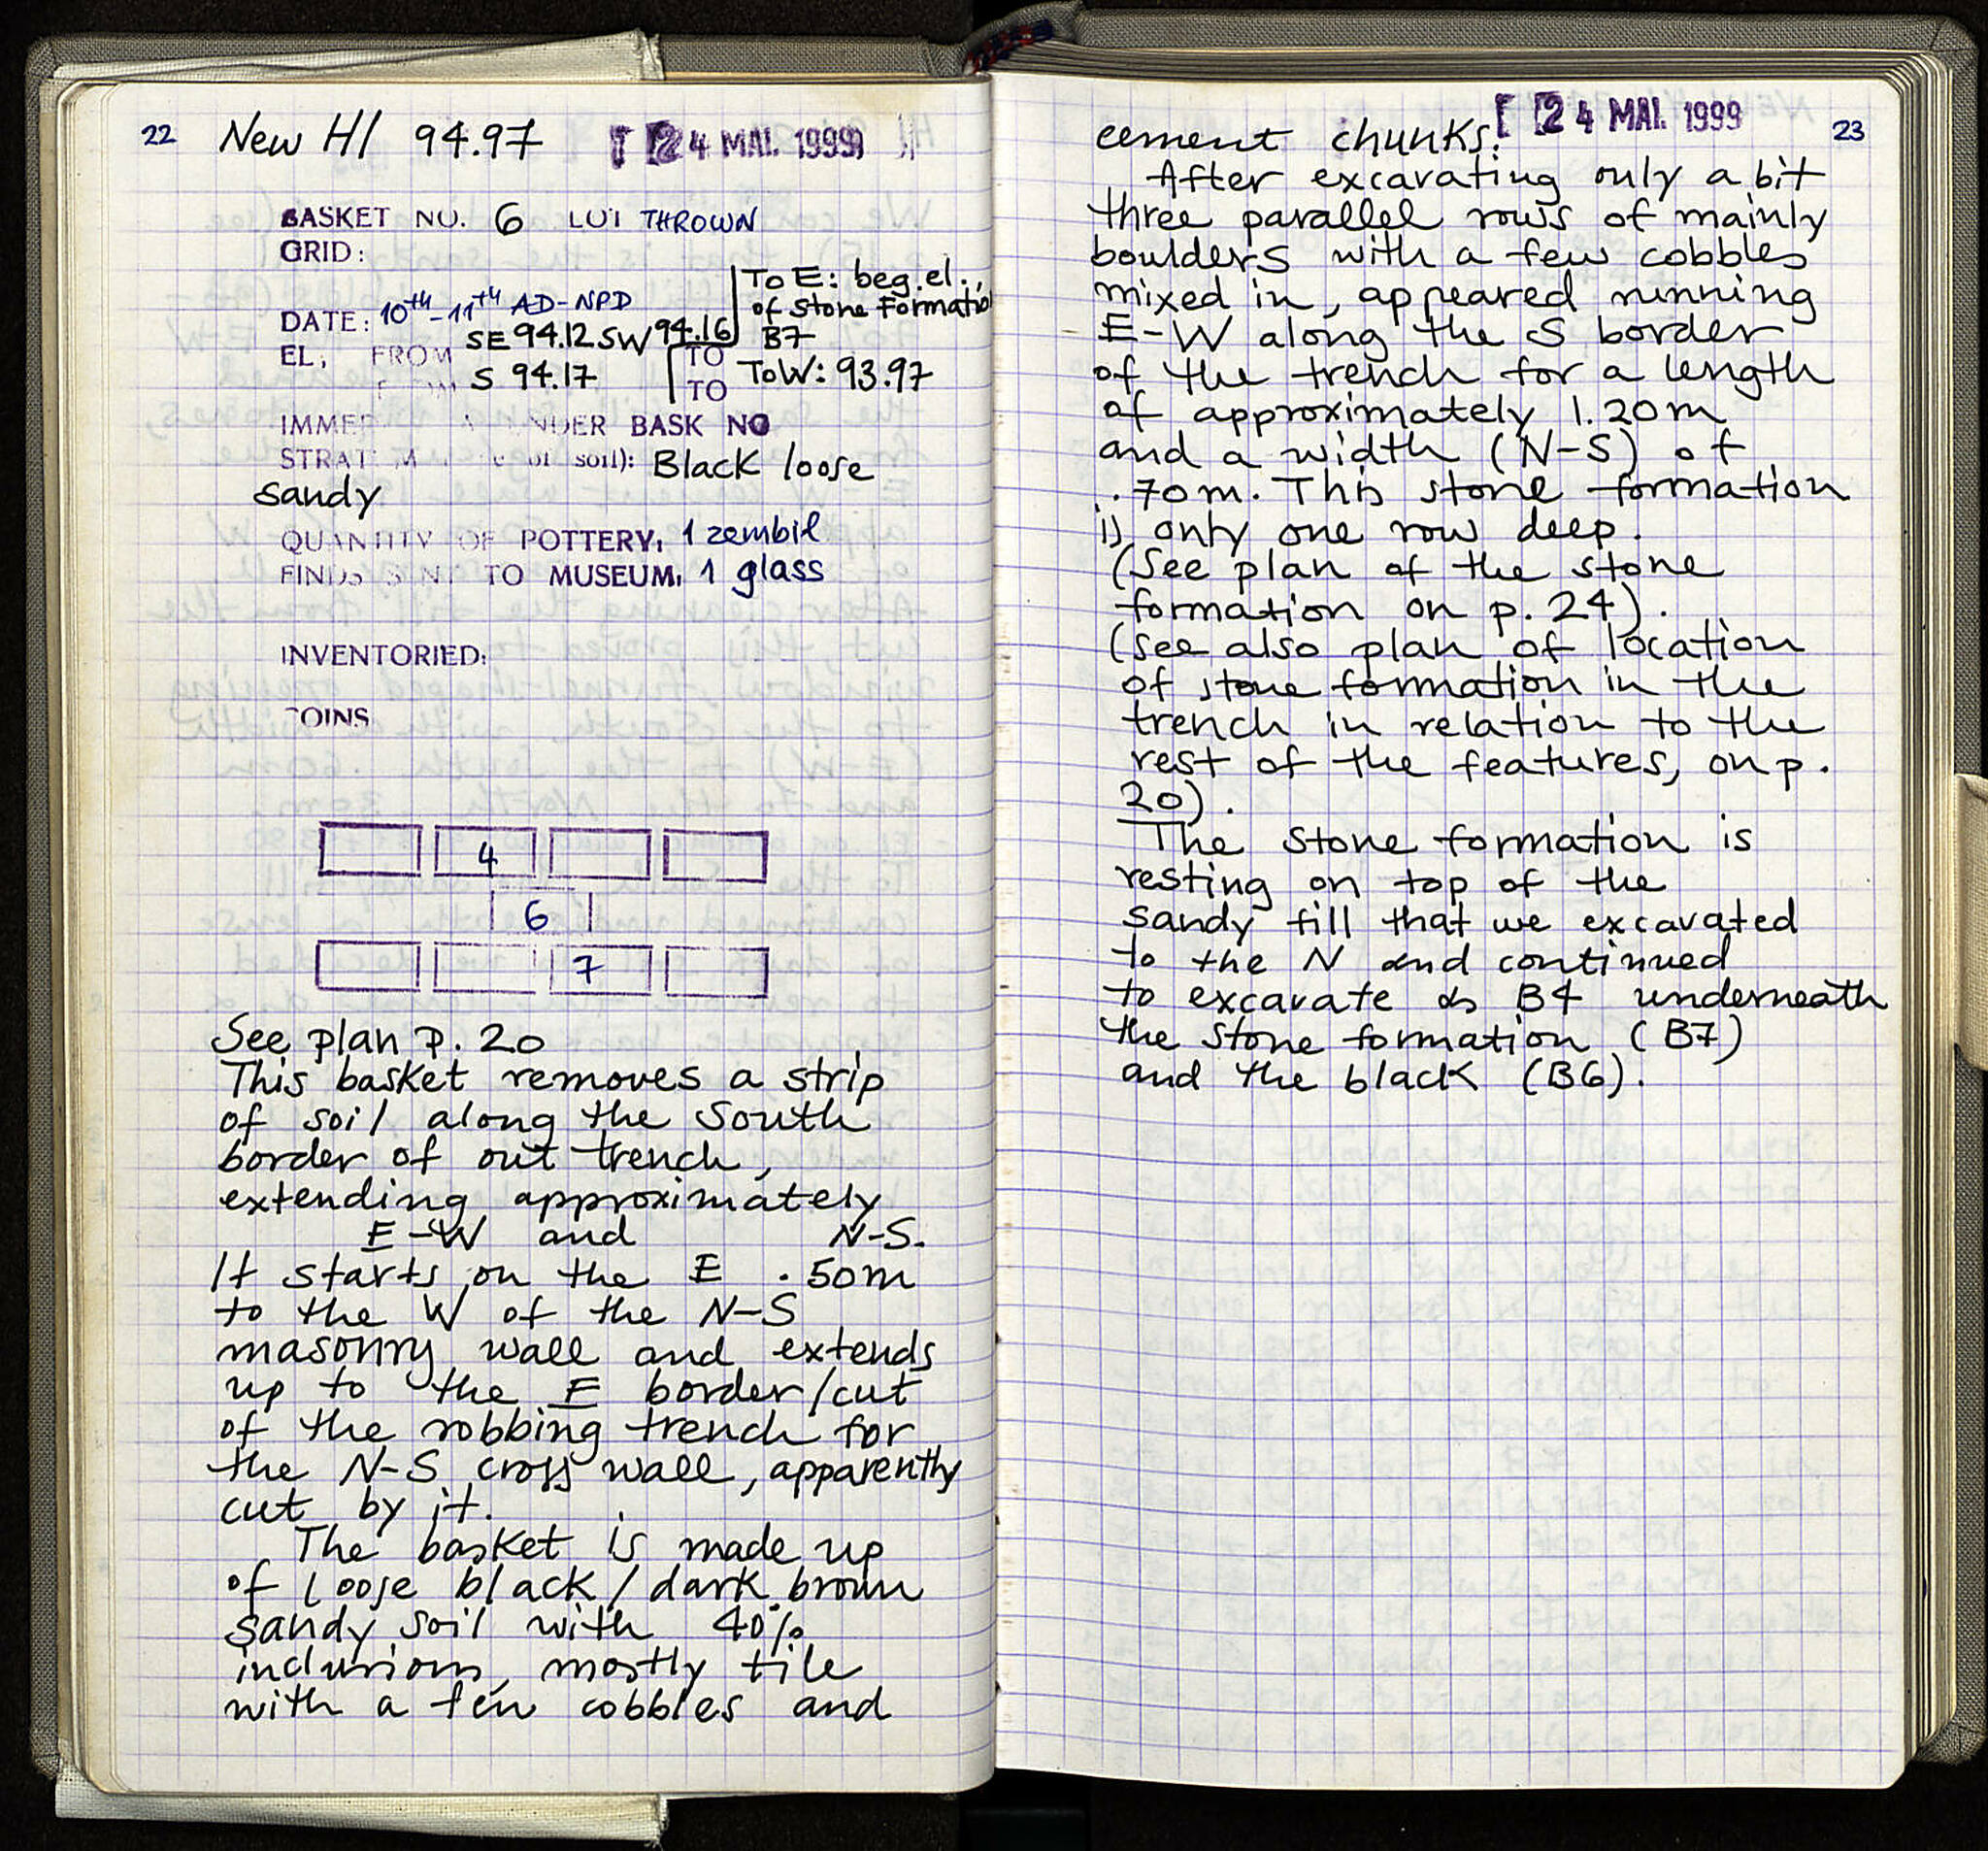 22 New HI 94.97 24 MAI. 1999
BASKET NO. 6 LOT THROWN
GRID:
DATE: 10th-11th AD-NPD
EL; FROM SE 94.12 SW 94.16 TO To E: beg.el. of Stone Formatio B7
S 94.17 TO To W: 93.97
IMMER UNDER BASK NO
STRAT M soil): Black loose
sandy
QUANTITY OF POTTERY, 1 zembil
FINDS SENT TO MUSEUM, 1 glass
INVENTORIED:
COINS
4
6
7
See plan p. 20
This basket removes a strip
of soil along the South
border of out trench,
extending approximately
E-W and N-S.
It starts on the E .50m
to the W of the N-S
masonry wall and extends
up to the E border/cut
of the robbing trench for
the N-S cross wall, apparently
cut by it.
The basket is made up
of loose black/dark brown
sandy soil with 40%
inclusions, mostly tile
with a few cobbles and
24 MAI. 1999 23
cement chunks.
After excavating only a bit
three parallel rows of mainly
boulders with a few cobbles
mixed in, appeared running
E-W along the S border
of the trench for a length
of approximately 1.20m
and a width (N-S) of
.70m. This stone formation
is only one row deep.
(See plan of the stone
formation on p. 24).
(see also plan of location
of stone formation in the
trench in relation to the
rest of the features, on p.
20).
The stone formation is
resting on top of the
sandy fill that we excavated
to the N and continued
to excavate as B4 underneath
the stone formation (B7)
and the black (B6).